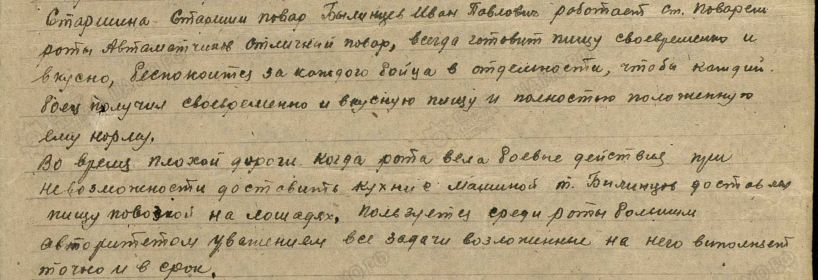 Старшина Старший повар Былинцев Иван Павлович работает ст. Поваром
роты Автоматчиков отличный повар, всегда готовит пищу своевременно и
вкусно, беспокоится за каждого бойца в отдельности, чтобы каждый
боец получил своевременно и вкусную пищу и полностью положенную
ему норму.
Во время плохой дороги когда рота вела боевые действия при
невозможности доставить кухню с машиной т. Былинцев доставлял
пищу повозкой на лошадях. Пользуется среди роты большим
авторитетом уважением все задачи возложенные на него выполняет
точно и в срок.